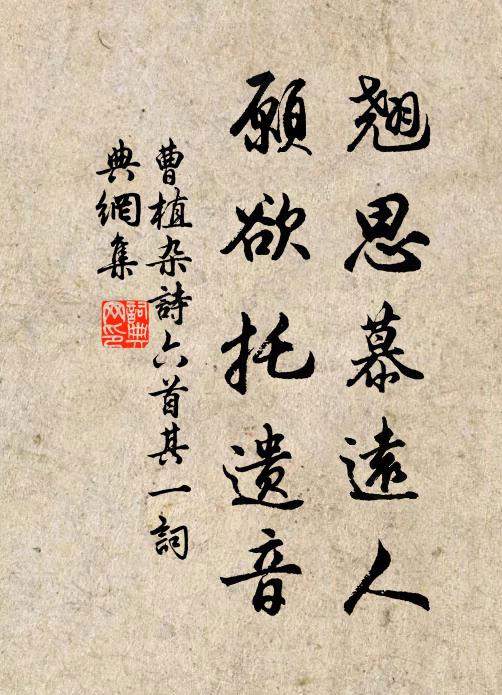 翹思慕遠人
願欲托遺音
曹植杂詩六首其一詞
典網集
詞典网印